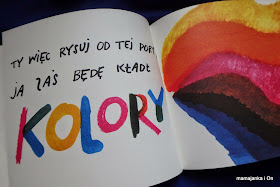 TY WIĘC RYSUJ OD TEJ PORY
JA ZAŚ BĘDĘ KŁADŁ
KOLORY
mamajanka i On